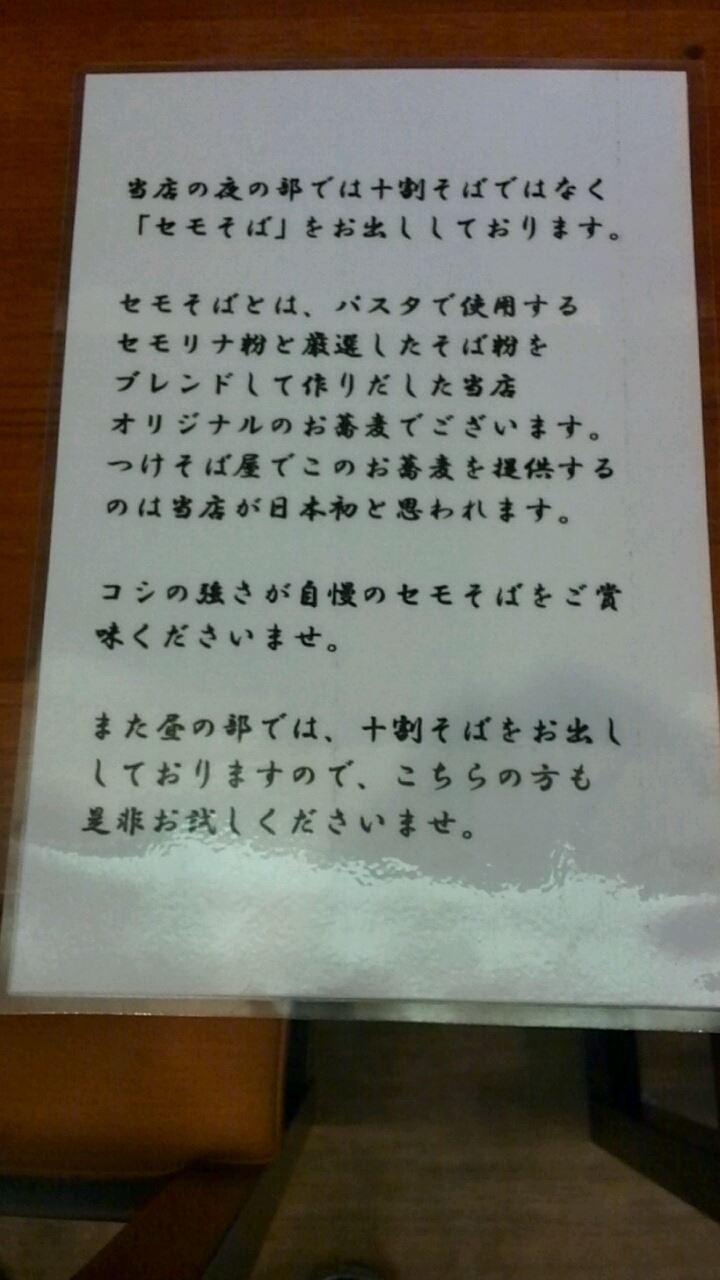 当店の夜の部では十割そばではなく
「セモそば」をお出ししております。
セモそばとは、パスタで使用する
セモリナ粉と厳選したそば粉を
ブレンドして作りだした当店
オリジナルのお蕎麦でございます。
つけそば屋でこのお蕎麦を提供する
のは当店が日本初と思われます。
コシの強さが自慢のセモそばをご賞
味くださいませ。
また昼の部では、十割そばをお出し
しておりますので、こちらの方も
是非お試しくださいませ。